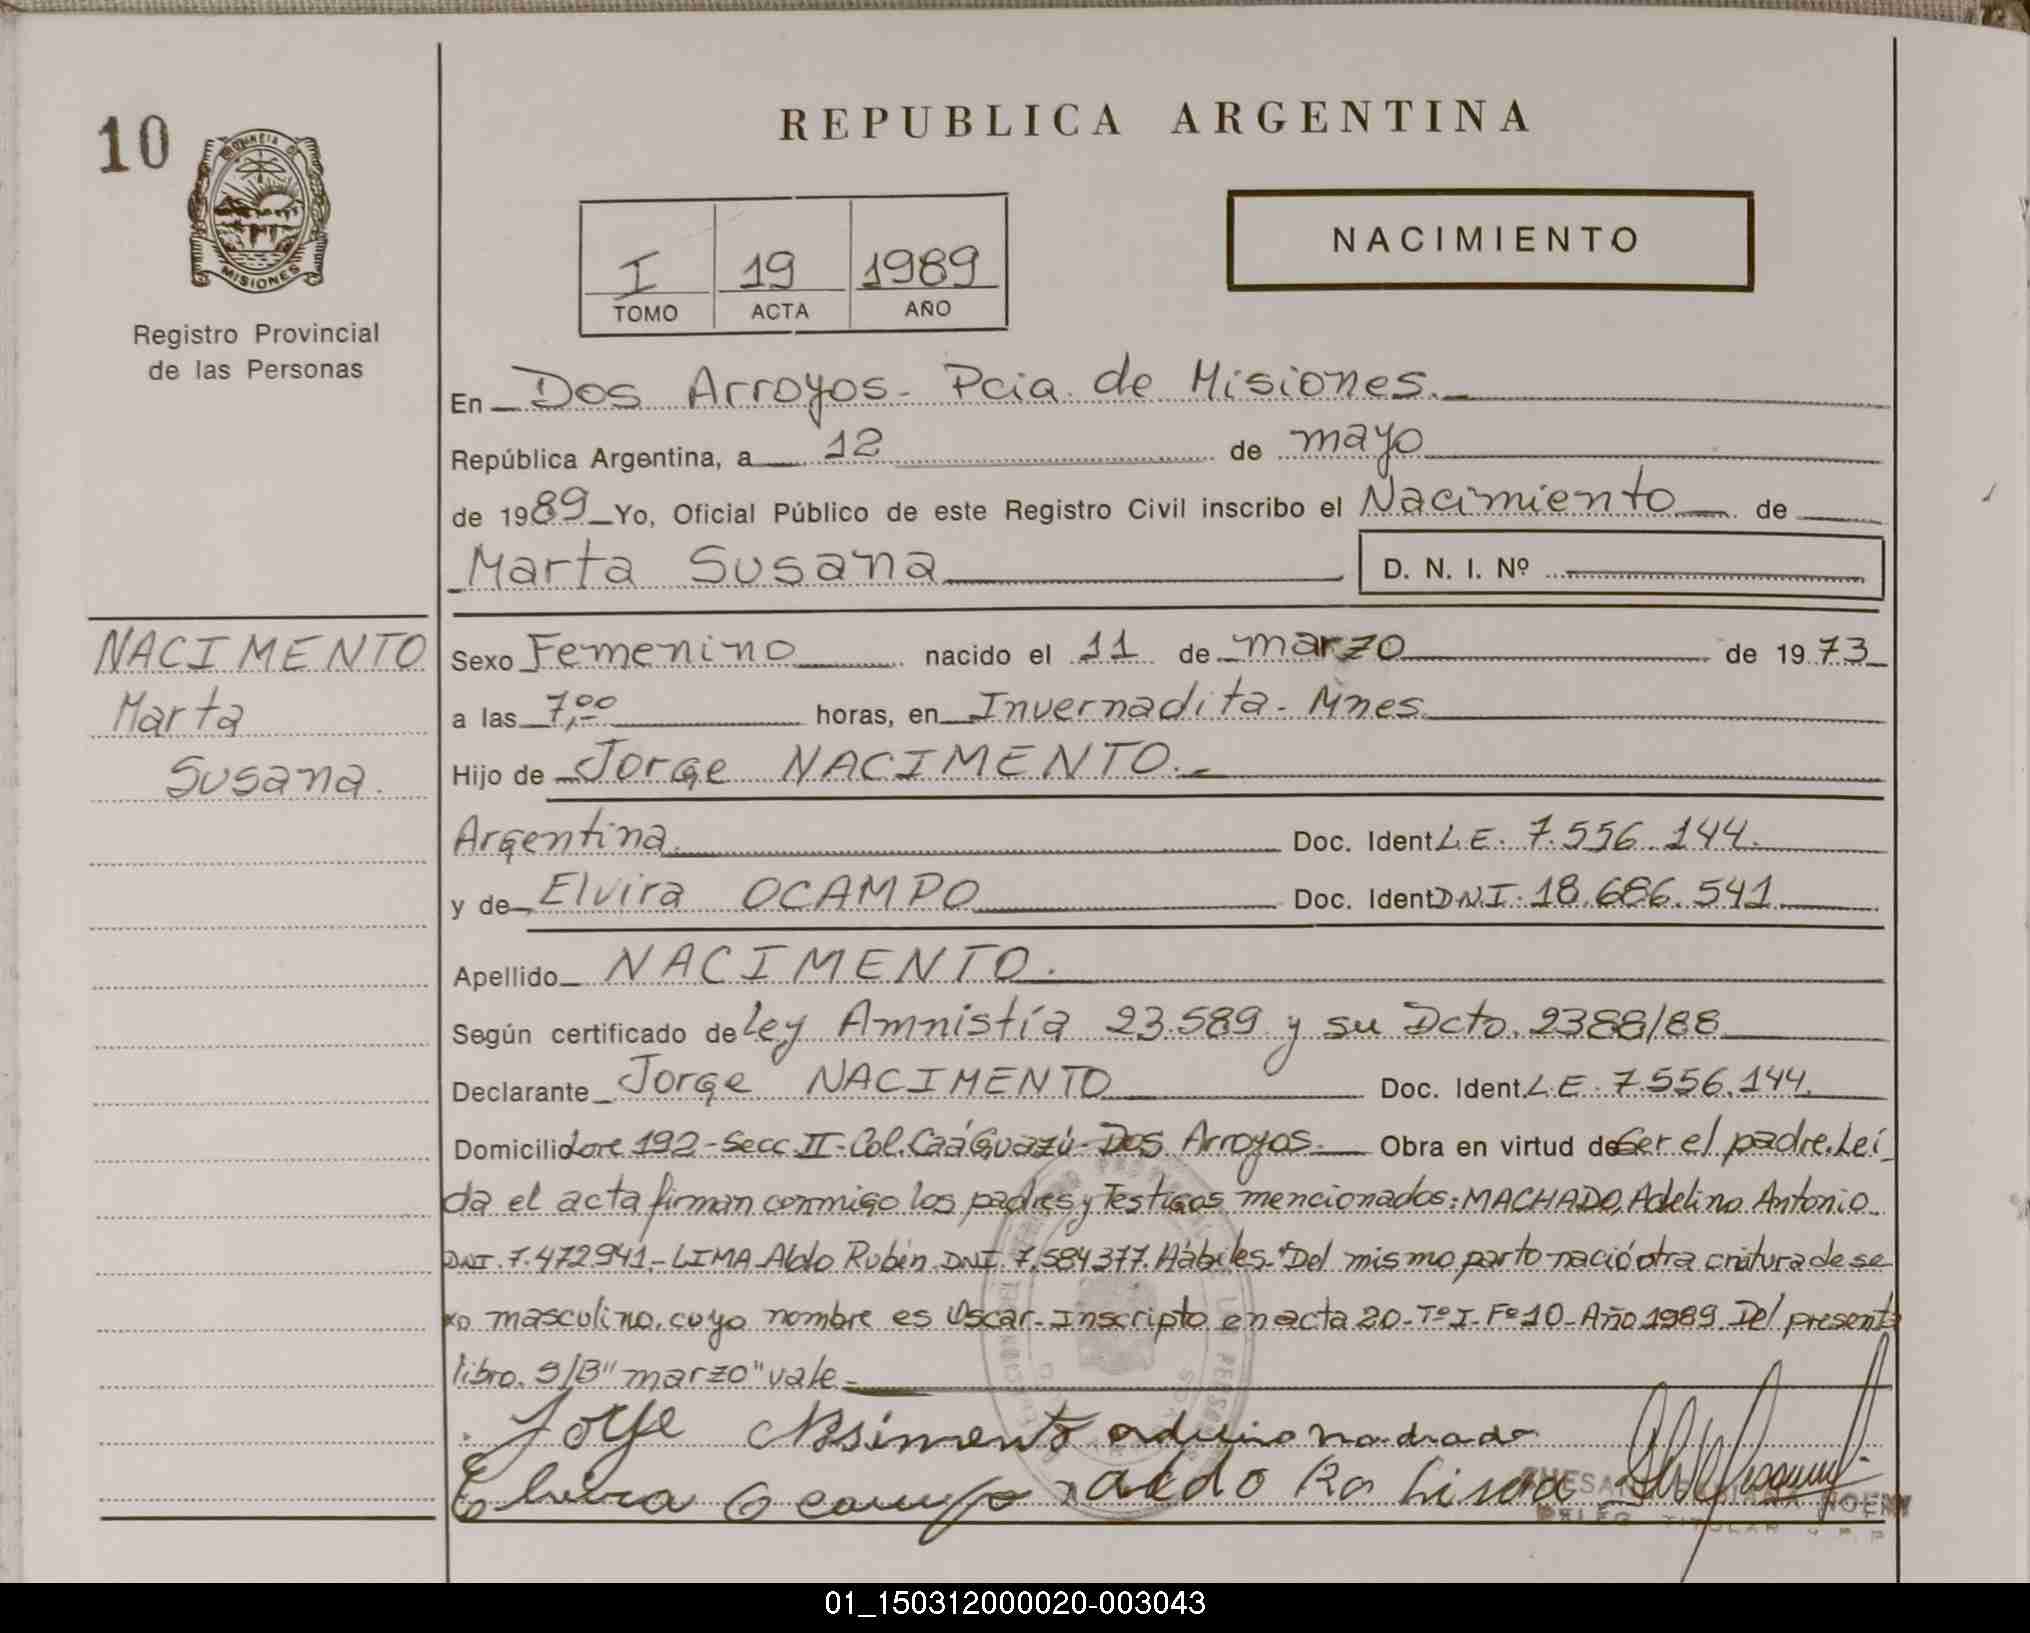 10
REPUBLICA ARGENTINA
PROVINCIA DE
MISIONES
Registro Provincial
de las Personas
I 19 1989
TOMO ACTA AÑO
NACIMIENTO
En Dos Arroyos- Pcia. de Misiones.
República Argentina, a 12 de mayo
de 1989 Yo, Oficial Público de este Registro Civil inscribo el Nacimiento de
Marta Susana D. N. I. Nº
NACIMENTO
Marta
Susana.
Sexo Femenino nacido el 11 de marzo de 1973
a las 7,00 horas, en Invernadita- Mnes.
Hijo de Jorge NACIMENTO.-
Argentina. Doc. Ident L.E. 7.556.144.
y de Elvira OCAMPO Doc. Ident DNI. 18.686.541
Apellido NACIMENTO.
Según certificado de Ley Amnistía 23.589 y su Dcto. 2388/88
Declarante Jorge NACIMENTO Doc. Ident. L.E. 7.556.144.
Domicilio Lote 192-Secc. II-Col. CaáGuazú-Dos Arroyos. Obra en virtud de Ser el padre. Leí
da el acta firman conmigo los padres y Testigos mencionados: MACHADO, Adelino Antonio
DNI. 7.472.941.- LIMA Aldo Rubén DNI 7.584.377. Hábiles. "Del mismo parto nació otra criatura de se
xo masculino, cuyo nombre es Oscar- Inscripto en acta 20-Tº I- Fº 10-Año 1989. Del presente
libro. S/B "marzo" vale.-
Jorge Nasimento
Elvira Ocampo aldo
NOEMI
DELEG. TITULAR
01_150312000020-003043